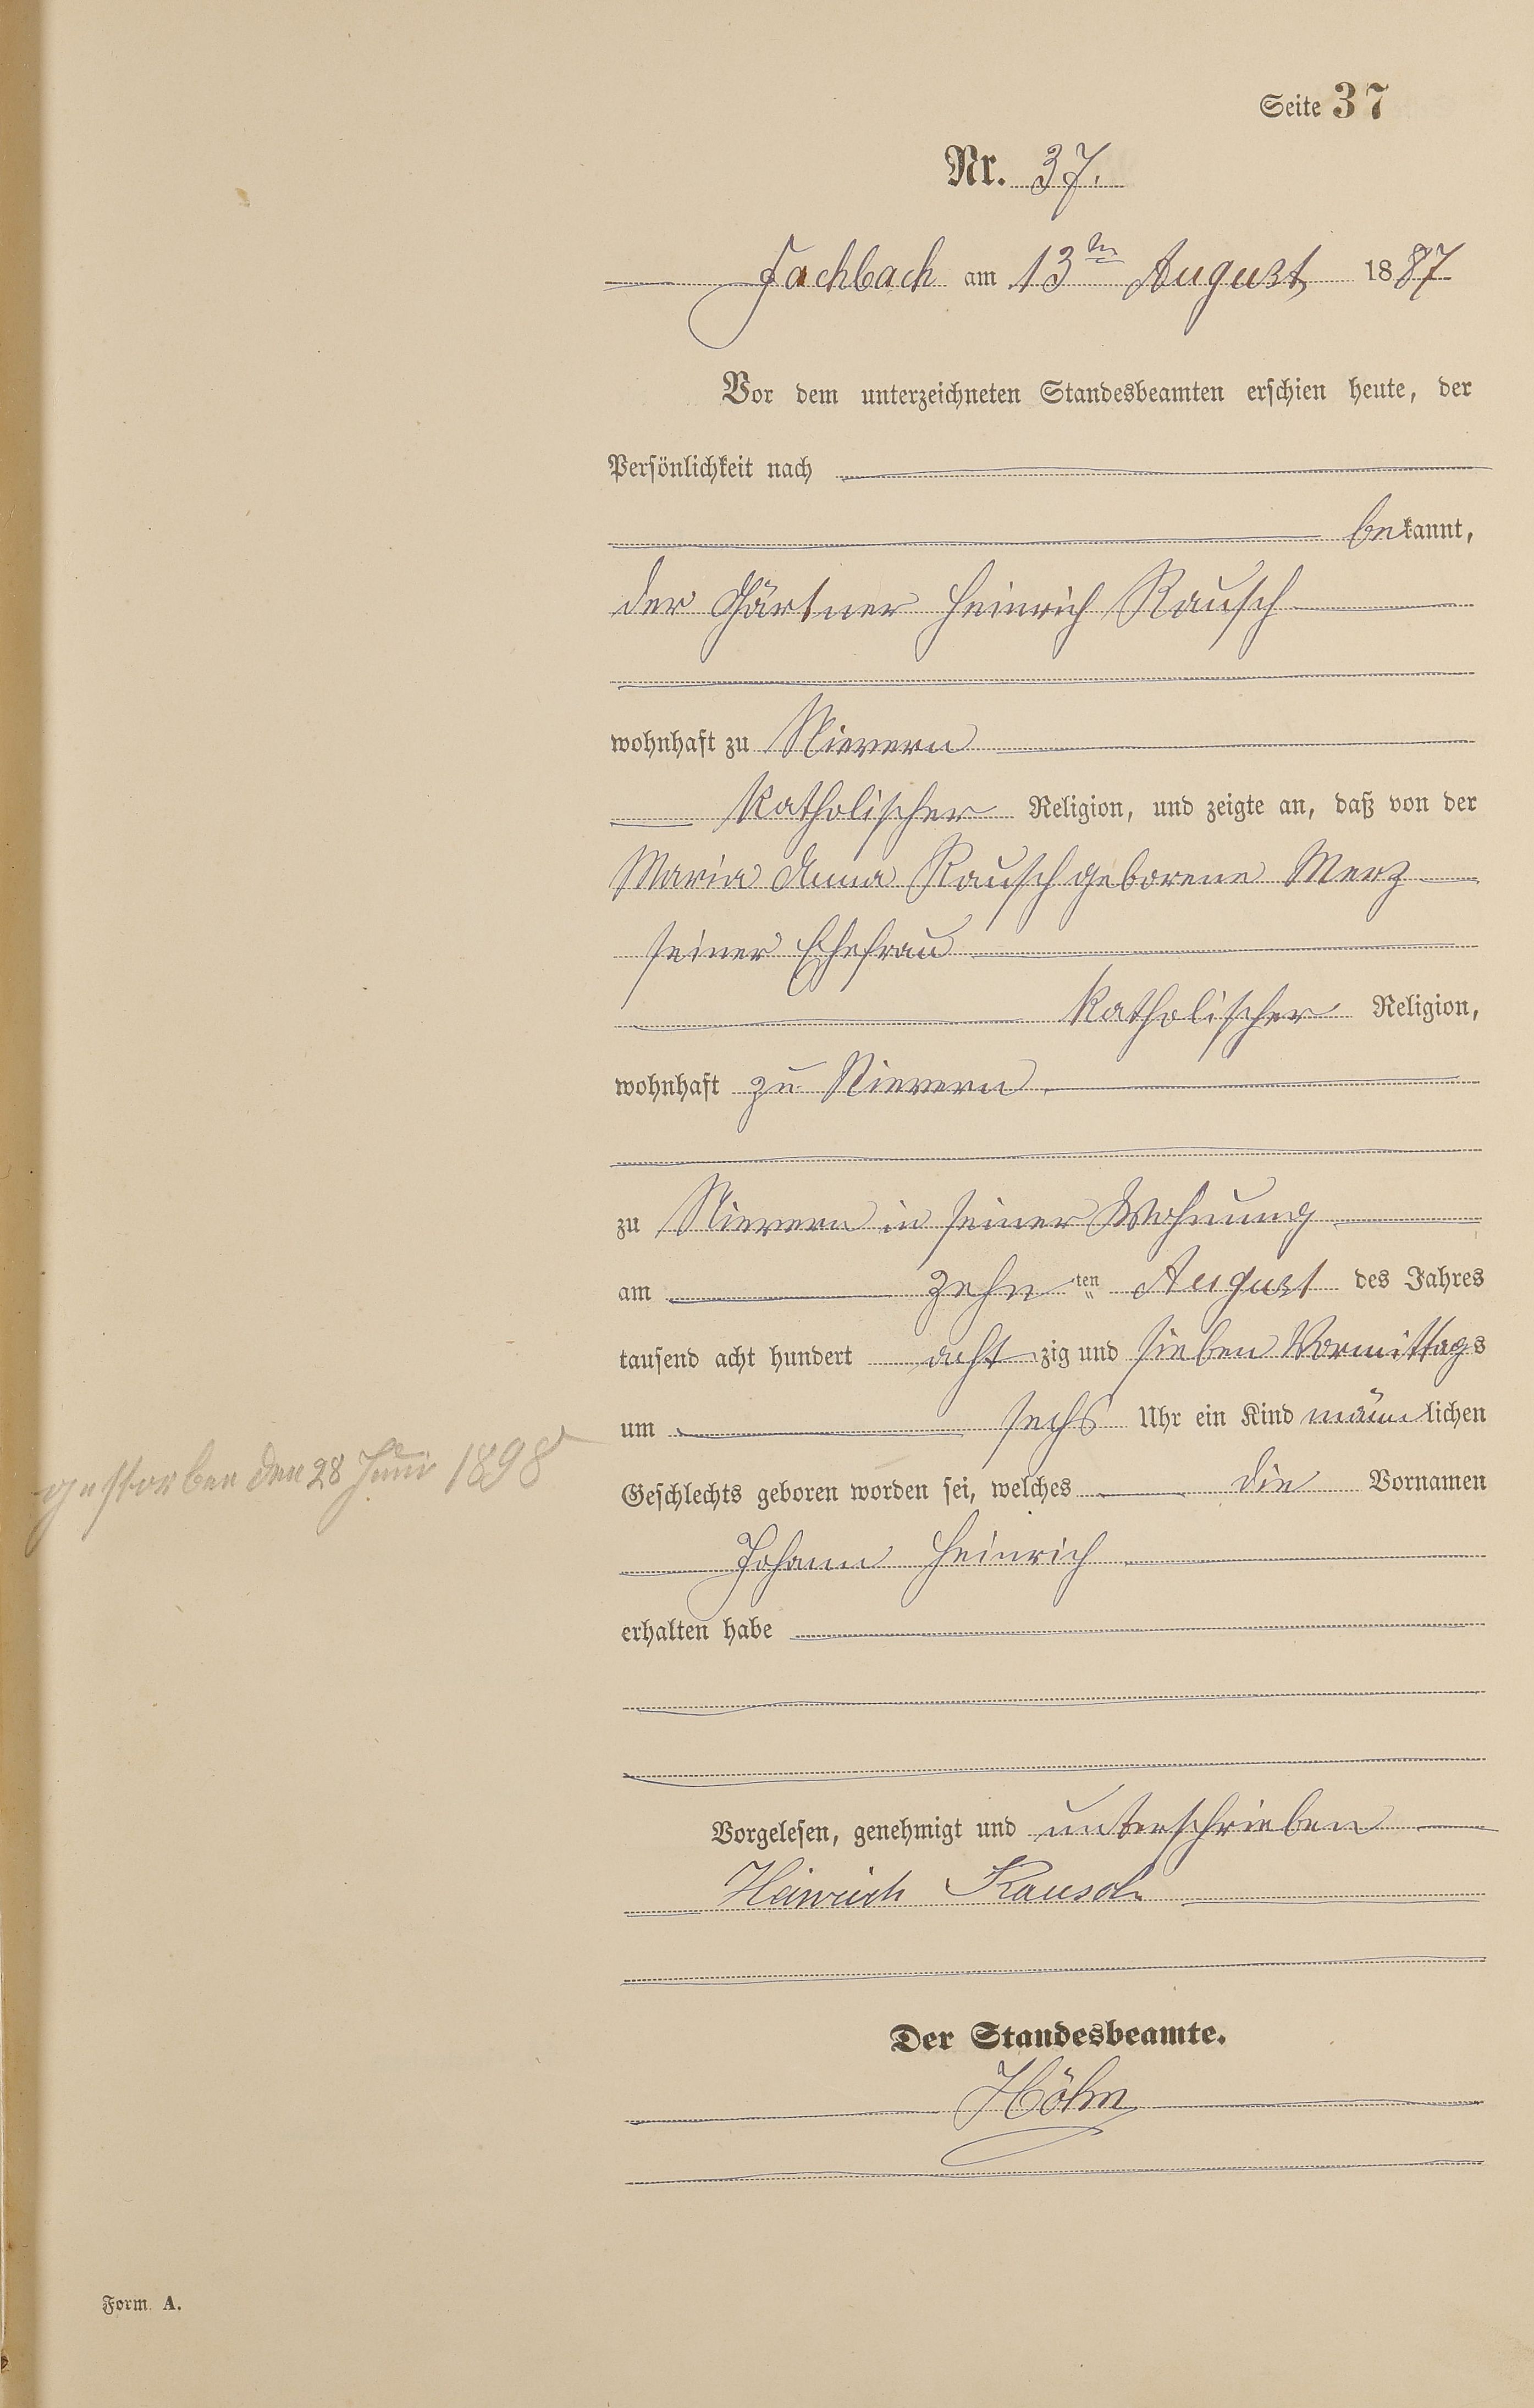 Seite 37
Nr. 37.
Fachbach am 13ten August 1887
Vor dem unterzeichneten Standesbeamten erschien heute, der
Persönlichkeit nach
bekannt,
der Gärtner Heinrich Rausch
wohnhaft zu Nievern
katholischer Religion, und zeigte an, daß von der
Maria Anna Rausch geborene Merz
seiner Ehefrau
katholischer Religion,
wohnhaft zu Nievern
zu Nievern in seiner Wohnung
am zehn ten August des Jahres
tausend acht hundert acht zig und sieben Vormittags
um sechs Uhr ein Kind männlichen
gestorben den 28 Juni 1898
Geschlechts geboren worden sei, welches die Vornamen
Johann Heinrich
erhalten habe
Vorgelesen, genehmigt und unterschrieben
Heinrich Rausch
Der Standesbeamte.
Höhn
Form. A.